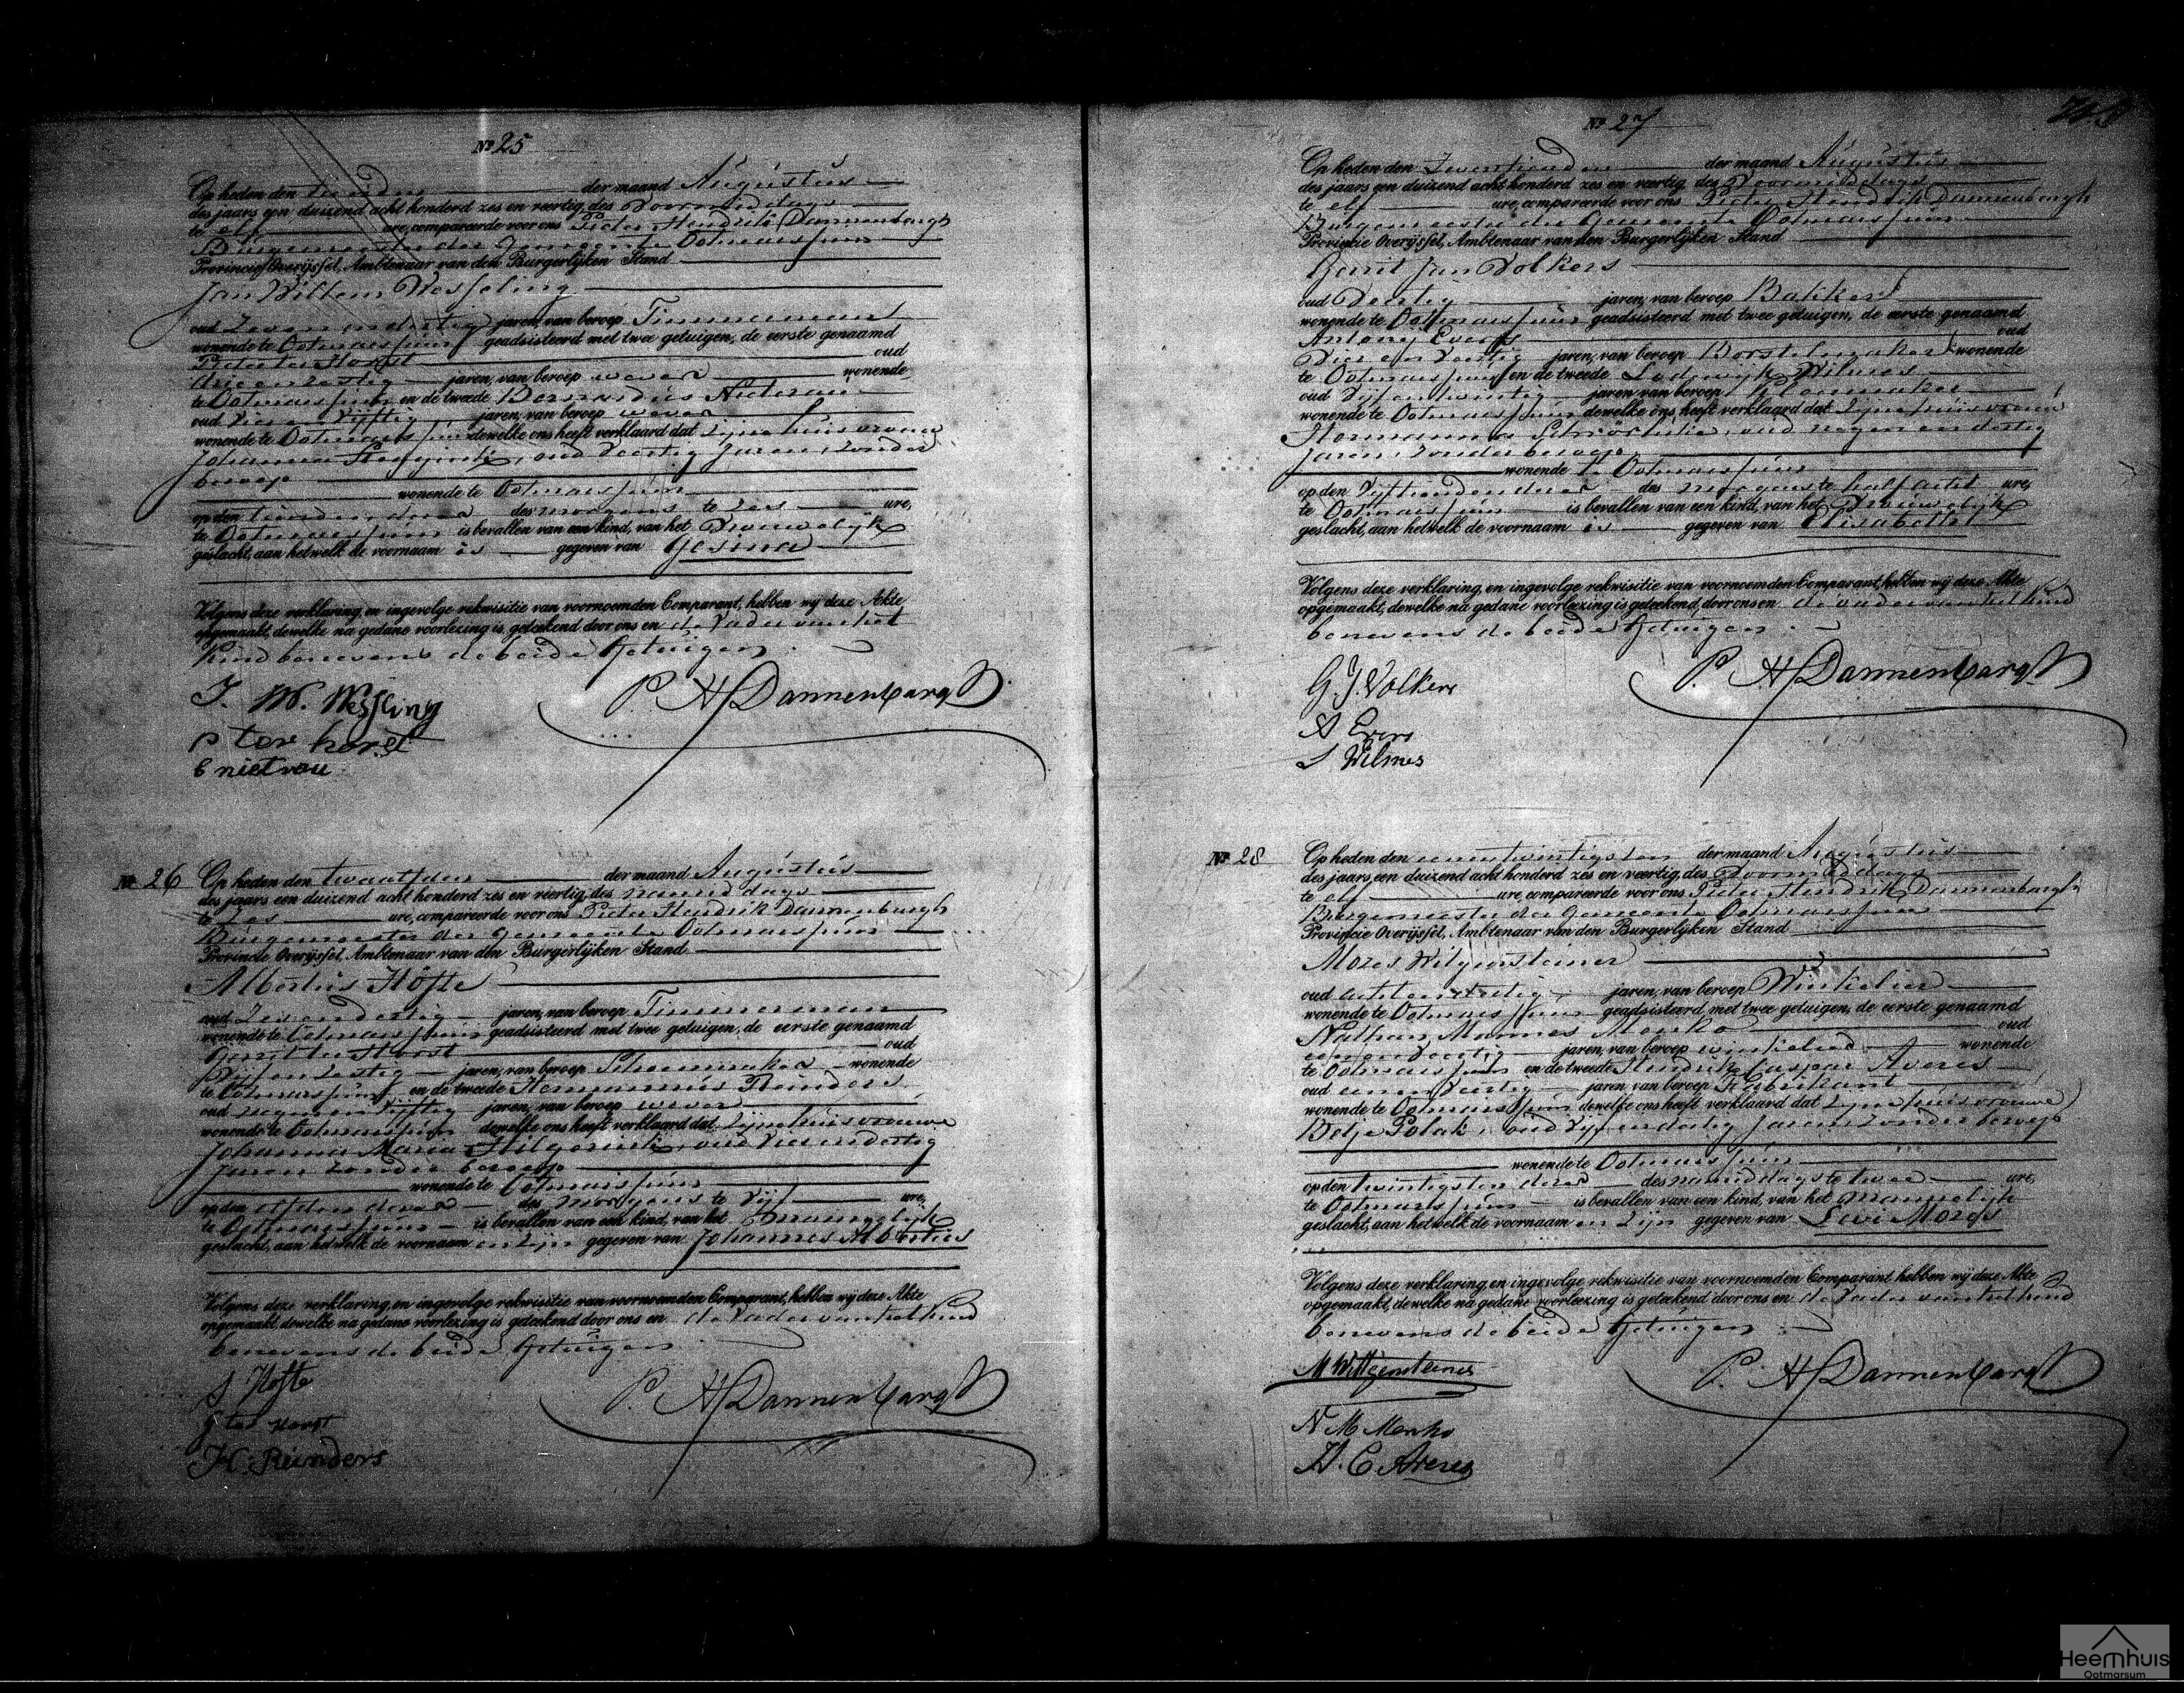 No 25
Op heden den tienden der maand Augustus
des jaars een duizend acht honderd zes en veertig, des Voormiddags
te elf ure, compareerde voor ons Pieter Hendrik Dannenbargh
Burgemeester der Gemeente Ootmarssum
Provincie Overijssel, Ambtenaar van den Burgerlijken Stand
Jan Willem Wesseling
oud Zeven en dertig jaren, van beroep Timmerman
wonende te Ootmarssum geadsisteerd met twee getuigen, de eerste genaamd
Pieter ter Horst oud
drie en zestig jaren, van beroep wever wonende
te Ootmarssum en de tweede Bernardus
oud Vier en Vijftig jaren, van beroep wever
wonende te Ootmarssum dewelke ons heeft verklaard dat zijne huisvrouw
Johanna oud Veertig Jaren, zonder
beroep
wonende te Ootmarssum
op den tienden dezer des morgens te zes ure,
te Ootmarssum is bevallen van een kind, van het Vrouwelijk
geslacht, aan hetwelk de voornaam is gegeven van Gesina
Volgens deze verklaring, en ingevolge rekwisitie van voornoemden Comparant, hebben wij deze Akte
opgemaakt, dewelke na gedane voorlezing is geteekend door ons en de Vader van het
Kind benevens de beide Getuigen
J. W. Wesseling
P. H. Dannenbargh
P ter horst
B nietvou
No 26
Op heden den twaalfden der maand Augustus
des jaars een duizend acht honderd zes en veertig, des namiddags
te Zes ure, compareerde voor ons Pieter Hendrik Dannenbargh
Burgemeester der Gemeente Ootmarssum
Provincie Overijssel, Ambtenaar van den Burgerlijken Stand
Albertus Höfte
oud Zes en dertig jaren, van beroep Timmerman
wonende te Ootmarssum geadsisteerd met twee getuigen, de eerste genaamd
Gerrit ter Horst oud
Vijf en zestig jaren, van beroep Schoenmaker wonende
te Ootmarssum en de tweede Hermannus Reinders
oud negen en Vijftig jaren, van beroep wever
wonende te Ootmarssum dewelke ons heeft verklaard dat zijne huisvrouwe
Johanna Maria Hilgerink, oud Vier en dertig
Jaren zonder beroep
wonende te Ootmarssum
op den elfden dezer des morgens te Vijf ure,
te Ootmarssum is bevallen van een kind, van het mannelijk
geslacht, aan hetwelk de voornaam en zijn gegeven van Johannes Albertus
Volgens deze verklaring, en ingevolge rekwisitie van voornoemden Comparant, hebben wij deze Akte
opgemaakt, dewelke na gedane voorlezing is geteekend door ons en de Vader van het kind
benevens de beide Getuigen
Hofte
P. H. Dannenbargh
G ter Horst
H. Reinders
No 27
Op heden den Zeventienden der maand Augustus
des jaars een duizend acht honderd zes en veertig, des Voormiddags
te elf ure, compareerde voor ons Pieter Hendrik Dannenbargh
Burgemeester der Gemeente Ootmarssum
Provincie Overijssel, Ambtenaar van den Burgerlijken Stand
Gerrit Jan Volkers
oud Veertig jaren, van beroep Bakker
wonende te Ootmarssum geadsisteerd met twee getuigen, de eerste genaamd
Antony Evers oud
Vier en Veertig jaren, van beroep Borstelmaker wonende
te Ootmarssum en de tweede Lodewijk Wilmes
oud Vijf en twintig jaren van beroep
wonende te Ootmarssum dewelke ons heeft verklaard dat zijne huisvrouw
Hermanna oud negen en dertig
Jaren, zonder beroep
wonende te Ootmarssum
op den Vijftienden dezer des morgens te half acht ure,
te Ootmarssum is bevallen van een kind, van het Vrouwelijk
geslacht, aan hetwelk de voornaam is gegeven van Elisabeth
Volgens deze verklaring, en ingevolge rekwisitie van voornoemden Comparant, hebben wij deze Akte
opgemaakt, dewelke na gedane voorlezing is geteekend, door ons en de vader van het kind
benevens de beide Getuigen
G. J. Volkers
P. H. Dannenbargh
A Evers
L Wilmes
No 28
Op heden den eenentwintigsten der maand Augustus
des jaars een duizend acht honderd zes en veertig, des Voormiddags
te elf ure, compareerde voor ons Pieter Hendrik Dannenbargh
Burgemeester der Gemeente Ootmarssum
Provincie Overijssel, Ambtenaar van den Burgerlijken Stand
Mozes Witgensteiner
oud acht en dertig jaren, van beroep Winkelier
wonende te Ootmarssum geadsisteerd met twee getuigen, de eerste genaamd
Nathan Mannes Menko oud
een en Veertig jaren, van beroep winkelier wonende
te Ootmarssum en de tweede Hendrik Caspar Averes
oud een en Veertig jaren van beroep Fabrikant
wonende te Ootmarssum dewelke ons heeft verklaard dat zijne huisvrouwe
Betje Polak, oud Vijf en dertig Jaren zonder beroep
wonende te Ootmarssum
op den twintigsten dezer des namiddags te twee ure,
te Ootmarssum is bevallen van een kind, van het mannelijk
geslacht, aan hetwelk de voornaam en zijn gegeven van Levi Mozes
Volgens deze verklaring, en ingevolge rekwisitie van voornoemden Comparant hebben wij deze Akte
opgemaakt, dewelke na gedane voorlezing is geteekend door ons en de Vader van het kind
benevens de beide Getuigen
M Wittgensteiner
P. H. Dannenbargh
N M Menko
H. C. Averes
Heemhuis
Ootmarsum